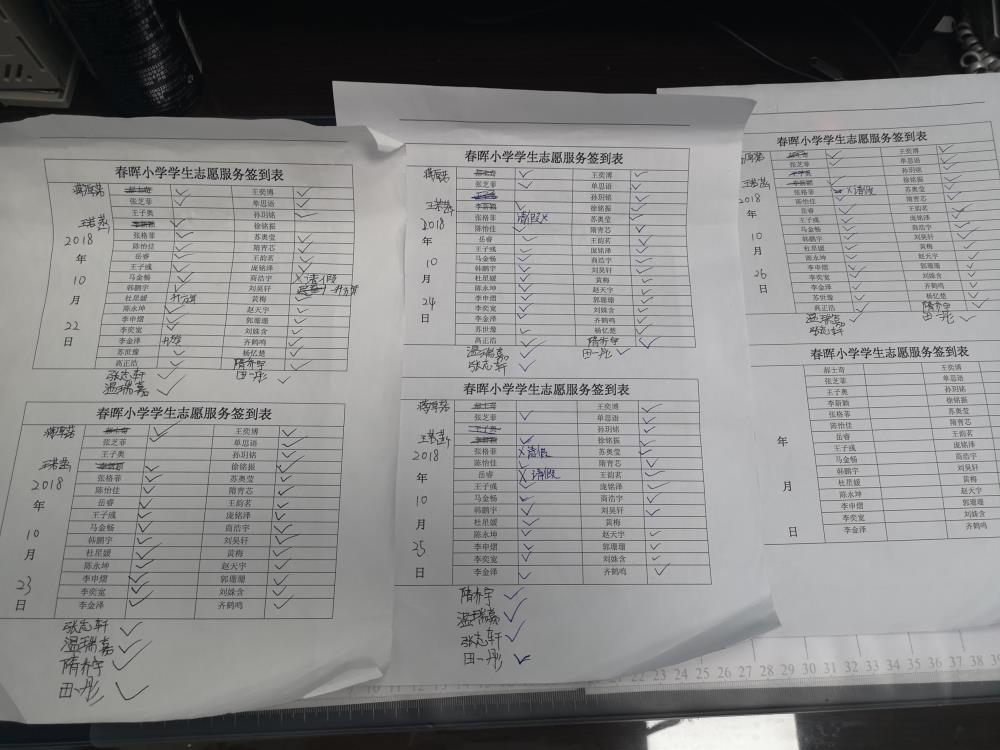 春晖小学学生志愿服务签到表
郝士奇 ✓ 王奕博 ✓
张芝菲 ✓ 单思语 ✓
王子奥 孙玥铭 ✓
李新颖 ✓ 徐铭振
张格菲 ✓ 苏奥莹 ✓
陈怡佳 ✓ 隋青芯 ✓
岳睿 ✓ 王韵茗 ✓
王子彧 ✓ 庞铭泽 ✓
马金畅 ✓ 商浩宇 X请假
韩鹏宇 ✓ 刘昊轩
杜星媛 升方宴 黄梅 ✓
陈永坤 ✓ 赵天宇 ✓
李申熠 ✓ 郭珊珊 ✓
李奕宽 ✓ 刘姝含 ✓
李金泽 齐鹤鸣 ✓
苏世豫 ✓ 杨忆楚 ✓
高正浩 ✓ 隋乔宇 ✓
张志轩 ✓ 田一彤 ✓
温瑞嘉 ✓
2018
年
10
月
22
日
春晖小学学生志愿服务签到表
郝士奇 ✓ 王奕博 ✓
张芝菲 ✓ 单思语 ✓
王子奥 孙玥铭 ✓
李新颖 徐铭振 ✓
张格菲 ✓ 苏奥莹 ✓
陈怡佳 ✓ 隋青芯 ✓
岳睿 ✓ 王韵茗 ✓
王子彧 ✓ 庞铭泽 ✓
马金畅 ✓ 商浩宇 ✓
韩鹏宇 ✓ 刘昊轩 ✓
杜星媛 ✓ 黄梅 ✓
陈永坤 ✓ 赵天宇 ✓
李申熠 ✓ 郭珊珊 ✓
李奕宽 ✓ 刘姝含 ✓
李金泽 ✓ 齐鹤鸣 ✓
2018
年
10
月
23
日
张志轩 ✓
温瑞嘉 ✓
隋乔宇 ✓
田一彤 ✓
春晖小学学生志愿服务签到表
郝士奇 ✓ 王奕博 ✓
张芝菲 ✓ 单思语 ✓
王子奥 孙玥铭 ✓
李新颖 徐铭振 ✓
张格菲 请假X 苏奥莹 ✓
陈怡佳 ✓ 隋青芯 ✓
岳睿 ✓ 王韵茗 ✓
王子彧 ✓ 庞铭泽 ✓
马金畅 ✓ 商浩宇 ✓
韩鹏宇 ✓ 刘昊轩 ✓
杜星媛 ✓ 黄梅 ✓
陈永坤 ✓ 赵天宇 ✓
李申熠 ✓ 郭珊珊 ✓
李奕宽 ✓ 刘姝含 ✓
李金泽 ✓ 齐鹤鸣 ✓
苏世豫 ✓ 杨忆楚 ✓
高正浩 ✓ 隋乔宇 ✓
温瑞嘉 ✓ 田一彤 ✓
张志轩 ✓
2018
年
10
月
24
日
春晖小学学生志愿服务签到表
郝士奇 王奕博 ✓
张芝菲 ✓ 单思语 ✓
王子奥 孙玥铭 ✓
李新颖 徐铭振 ✓
张格菲 X请假 苏奥莹 ✓
陈怡佳 ✓ 隋青芯 ✓
岳睿 X请假 王韵茗 ✓
王子彧 ✓ 庞铭泽 ✓
马金畅 ✓ 商浩宇 ✓
韩鹏宇 ✓ 刘昊轩 ✓
杜星媛 ✓ 黄梅
陈永坤 ✓ 赵天宇 ✓
李申熠 ✓ 郭珊珊 ✓
李奕宽 ✓ 刘姝含 ✓
李金泽 ✓ 齐鹤鸣 ✓
2018
年
10
月
25
日
隋乔宇 ✓
温瑞嘉 ✓
张志轩 ✓
田一彤 ✓
春晖小学学生志愿服务签到表
郝士奇 ✓ 王奕博 ✓
张芝菲 ✓ 单思语 ✓
王子奥 孙玥铭 ✓
李新颖 徐铭振 ✓
张格菲 X请假 苏奥莹 ✓
陈怡佳 ✓ 隋青芯 ✓
岳睿 ✓ 王韵茗 ✓
王子彧 ✓ 庞铭泽 ✓
马金畅 ✓ 商浩宇 ✓
韩鹏宇 ✓ 刘昊轩 ✓
杜星媛 ✓ 黄梅 ✓
陈永坤 ✓ 赵天宇 ✓
李申熠 ✓ 郭珊珊 ✓
李奕宽 ✓ 刘姝含 ✓
李金泽 ✓ 齐鹤鸣 ✓
苏世豫 ✓ 杨忆楚 ✓
高正浩 ✓ 隋乔宇 ✓
温瑞嘉 ✓ 田一彤 ✓
张志轩 ✓
2018
年
10
月
26
日
春晖小学学生志愿服务签到表
郝士奇 王奕博
张芝菲 单思语
王子奥 孙玥铭
李新颖 徐铭振
张格菲 苏奥莹
陈怡佳 隋青芯
岳睿 王韵茗
王子彧 庞铭泽
马金畅 商浩宇
韩鹏宇 刘昊轩
杜星媛 黄梅
陈永坤 赵天宇
李申熠 郭珊珊
李奕宽 刘姝含
李金泽 齐鹤鸣
年
月
日
22 23 24 25 26 27 28 29 30 31 32 33 34 35 36 37 38 39